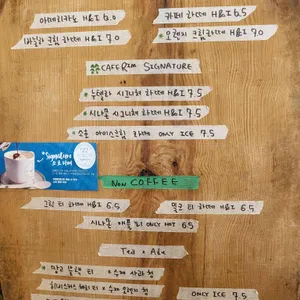 아메리카노 H&I 6.0
카페 라떼 H&I 6.5
바닐라 크림 라떼 H&I 7.0
오렌지 크림 라떼 H&I 7.0
CAFE RIM SIGNATURE
누텔라 시그니처 라떼 H&I 7.5
시나몬 시그니처 라떼 H&I 7.5
소울 아이스크림 라떼 ONLY ICE 7.5
Signature
NON COFFEE
그린 티 라떼 H&I 6.5
밀크 티 라떼 H&I 6.5
시나몬 애플 티 ONLY HOT 6.5
Tea + Ade
블랙 티 + 수제 사과청
티 + 수제 오렌지청
ONLY ICE 7.5